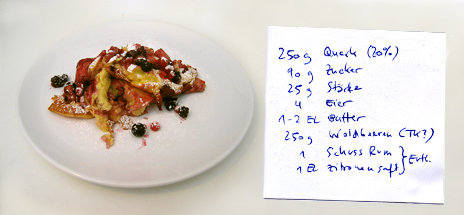 250g Quark (20%)
90g Zucker
25g Stärke
4 Eier
1-2 EL Butter
250g Waldbeeren (TK?)
1 Schuss Rum
1 EL Zitronensaft } Evtl.